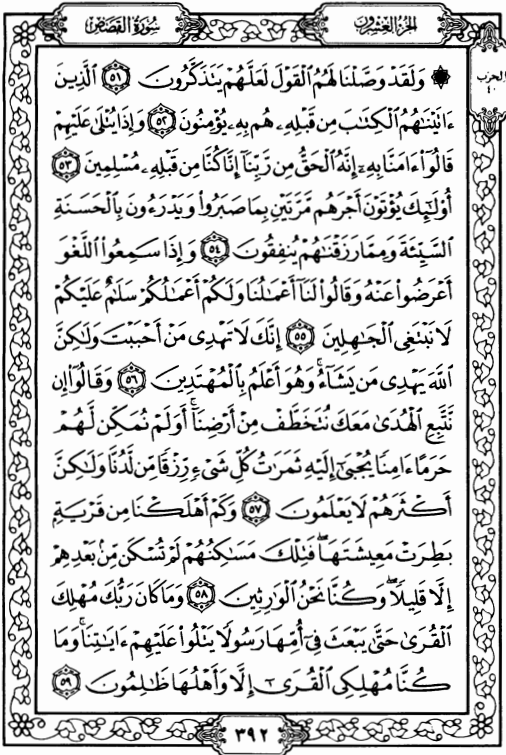 سورة القصص
الجزء العشرون
الحزب
٤٠
۞ وَلَقَدْ وَصَّلْنَا لَهُمُ الْقَوْلَ لَعَلَّهُمْ يَتَذَكَّرُونَ ٥١ الَّذِينَ
ءَاتَيْنَٰهُمُ الْكِتَٰبَ مِن قَبْلِهِۦ هُم بِهِۦ يُؤْمِنُونَ ٥٢ وَإِذَا يُتْلَىٰ عَلَيْهِمْ
قَالُوٓا۟ ءَامَنَّا بِهِۦٓ إِنَّهُ الْحَقُّ مِن رَّبِّنَآ إِنَّا كُنَّا مِن قَبْلِهِۦ مُسْلِمِينَ ٥٣
أُو۟لَٰٓئِكَ يُؤْتَوْنَ أَجْرَهُم مَّرَّتَيْنِ بِمَا صَبَرُوا۟ وَيَدْرَءُونَ بِالْحَسَنَةِ
السَّيِّئَةَ وَمِمَّا رَزَقْنَٰهُمْ يُنفِقُونَ ٥٤ وَإِذَا سَمِعُوا۟ اللَّغْوَ
أَعْرَضُوا۟ عَنْهُ وَقَالُوا۟ لَنَآ أَعْمَٰلُنَا وَلَكُمْ أَعْمَٰلُكُمْ سَلَٰمٌ عَلَيْكُمْ
لَا نَبْتَغِى الْجَٰهِلِينَ ٥٥ إِنَّكَ لَا تَهْدِى مَنْ أَحْبَبْتَ وَلَٰكِنَّ
اللَّهَ يَهْدِى مَن يَشَآءُ ۚ وَهُوَ أَعْلَمُ بِالْمُهْتَدِينَ ٥٦ وَقَالُوٓا۟ إِن
نَّتَّبِعِ الْهُدَىٰ مَعَكَ نُتَخَطَّفْ مِنْ أَرْضِنَآ ۚ أَوَلَمْ نُمَكِّن لَّهُمْ
حَرَمًا ءَامِنًا يُجْبَىٰٓ إِلَيْهِ ثَمَرَٰتُ كُلِّ شَىْءٍ رِّزْقًا مِّن لَّدُنَّا وَلَٰكِنَّ
أَكْثَرَهُمْ لَا يَعْلَمُونَ ٥٧ وَكَمْ أَهْلَكْنَا مِن قَرْيَةٍۭ
بَطِرَتْ مَعِيشَتَهَا ۖ فَتِلْكَ مَسَٰكِنُهُمْ لَمْ تُسْكَن مِّنۢ بَعْدِهِمْ
إِلَّا قَلِيلًا ۖ وَكُنَّا نَحْنُ الْوَٰرِثِينَ ٥٨ وَمَا كَانَ رَبُّكَ مُهْلِكَ
الْقُرَىٰ حَتَّىٰ يَبْعَثَ فِىٓ أُمِّهَا رَسُولًا يَتْلُوا۟ عَلَيْهِمْ ءَايَٰتِنَا ۚ وَمَا
كُنَّا مُهْلِكِى الْقُرَىٰٓ إِلَّا وَأَهْلُهَا ظَٰلِمُونَ ٥٩
٣٩٢